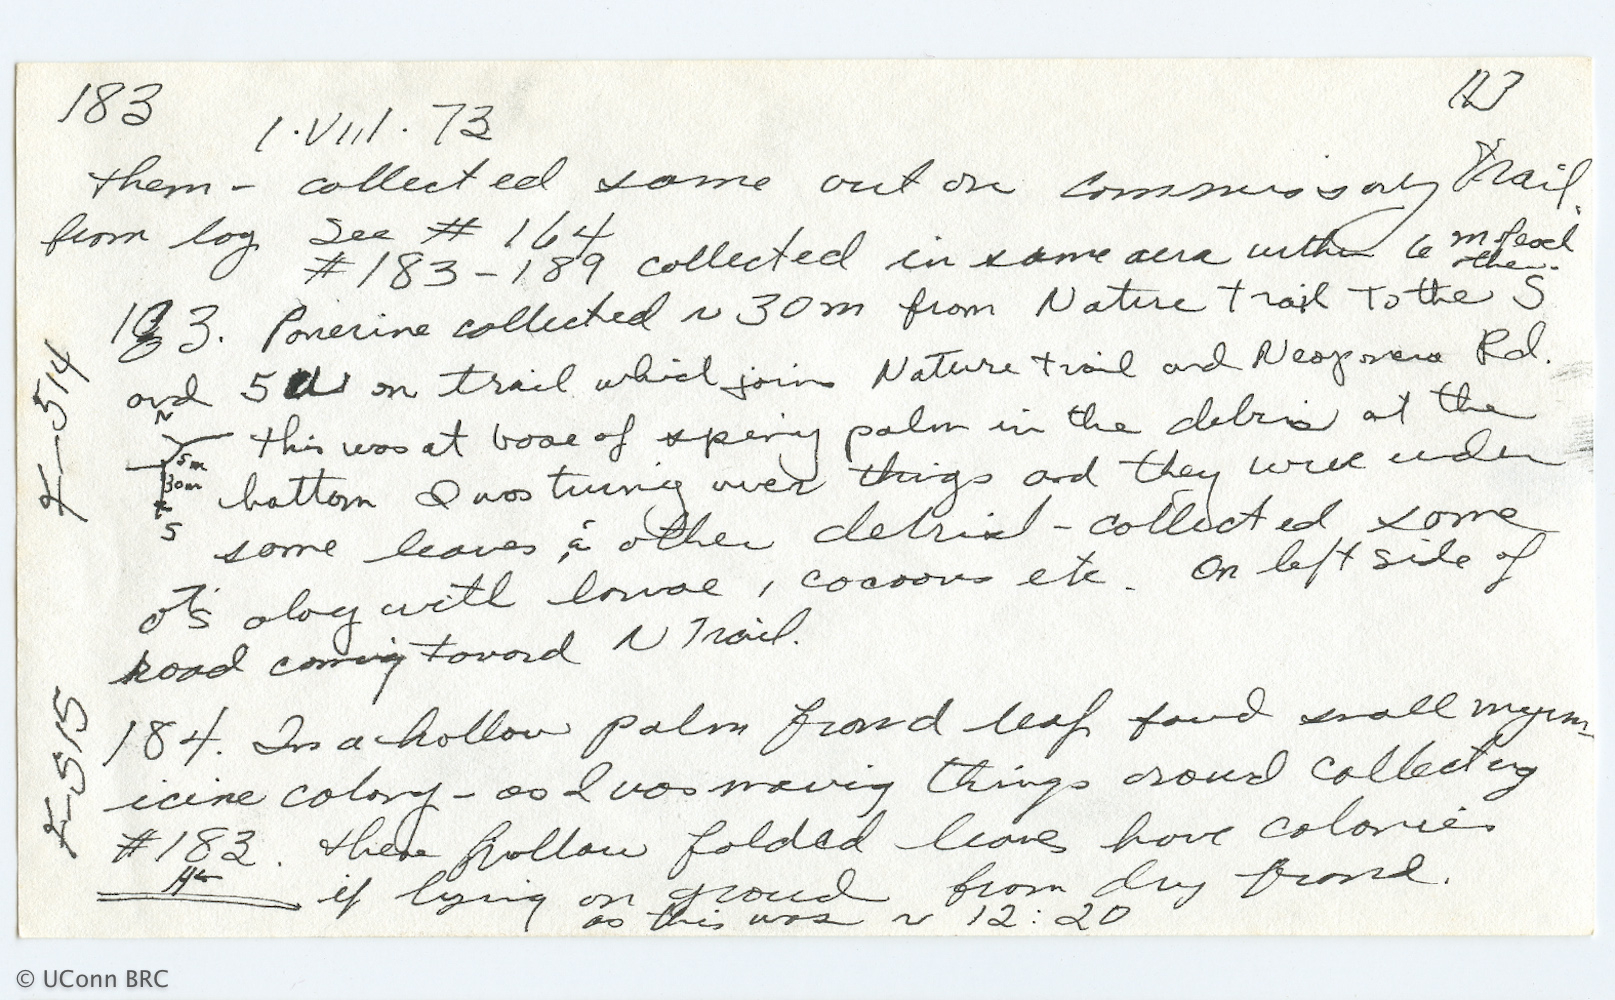 183
113
1.VIII.73
them - collected some out on Commissary Trail.
from log See # 164
#183-189 collected in same aera within 6 m of each other.
183. Ponerine collected ~ 30m from Nature trail to the S
and 5 W on trail which joins Nature trail and Neoponera Rd.
N
this was at base of spiny palm in the debris at the
5m
30m
S
bottom I was turning over things and they were under
some leaves & other debris - collected some
along with larvae, cocoons etc. On left side of
road coming toward N Trail.
K-514
184. In a hollow palm frond leaf found small myrm-
icine colony - as I was moving things around collecting
#183. these hollow folded leaves have colonies
if lying on ground from dry frond.
as this was ~ 12:20
K-515
© UConn BRC